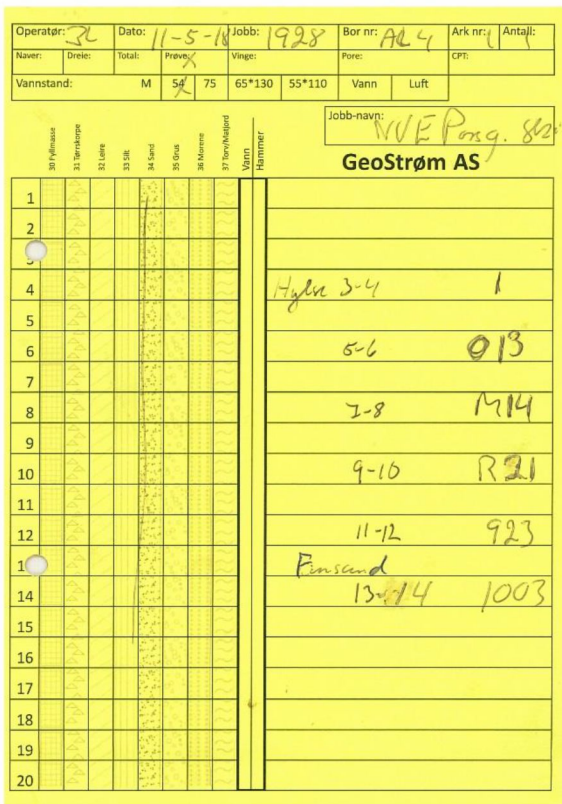 Operatør: JL Dato: 11-5-18 Jobb: 1928 Bor nr: AL 4 Ark nr: 1 Antall: 1
Naver: Dreie: Total: Prøve: X Vinge: Pore: CPT:
Vannstand: M 54 75 65*130 55*110 Vann Luft
Jobb-navn:
NVE
GeoStrøm AS
30 Fyllmasse
31 Tørrskorpe
32 Leire
33 Silt
34 Sand
35 Grus
36 Morene
37 Torv/Matjord
Vann
Hammer
1
2
4 Hylse 3-4 1
5
6 5-6 013
7
8 7-8 M14
9
10 9-10 R21
11
12 11-12 923
1 Finsand
14 13-14 1003
15
16
17
18
19
20